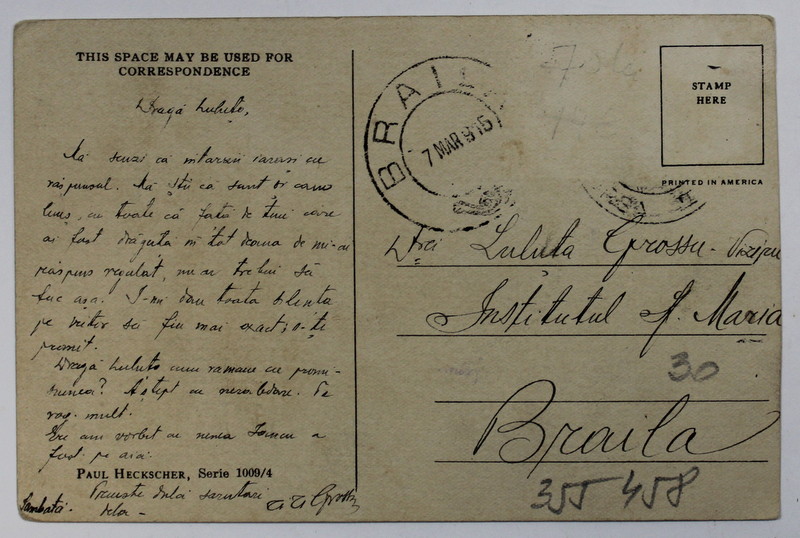 THIS SPACE MAY BE USED FOR
CORRESPONDENCE
Dragă Luluto,
Mă scuzi că intarzii iarasi cu
răspunsul. Mă știi că sunt
lenes, cu toate că față de tine care
ai fost drăguta de mi-ai
răspuns regulat, nu ar trebui să
fac asa. I-mi dau toata silinta
pe viitor să fiu mai exact, o-ți
promit.
Dragă Luluto cum ramane cu promi-
siunea? Astept cu nerabdare. Te
rog mult.
Eu am vorbit cu nenea Iancu a
fost pe aici.
PAUL HECKSCHER, Serie 1009/4
Primeste dulci sarutari
dela -
Sambată.
BRAILA
7 MAR 915
STAMP
HERE
PRINTED IN AMERICA
Drei Luluta Grossu -
Institutul Sf. Maria
30
Braila
355 458